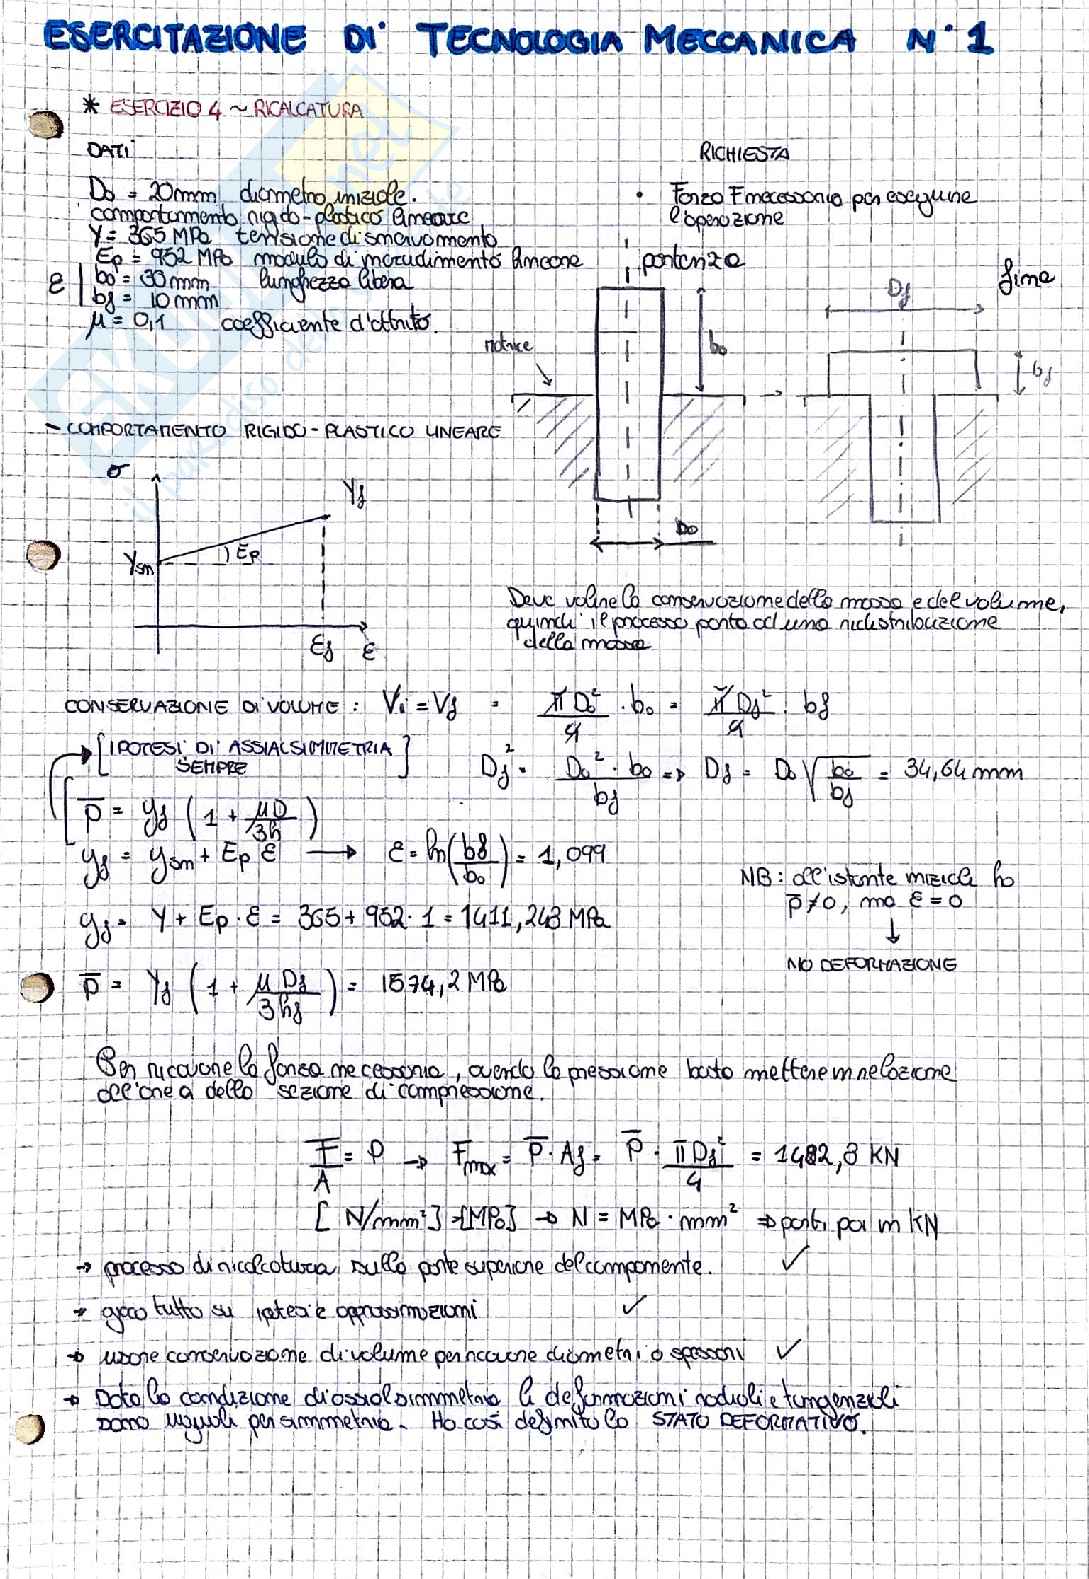 ESERCITAZIONE DI TECNOLOGIA MECCANICA N°1
* ESERCIZIO 4 ~ RICALCATURA
DATI
D₀ = 20mm diametro iniziale.
comportamento rigido-plastico lineare
Y = 365 MPa tensione di snervamento
Ep = 952 MPa modulo di incrudimento lineare
ε | b₀ = 30mm lunghezza libera
bf = 10mm
μ = 0,1 coefficiente d'attrito.
RICHIESTA
• Forza F necessaria per eseguire
l'operazione
partenza
fine
matrice
b₀
D₀
Df
bf
- COMPORTAMENTO RIGIDO-PLASTICO LINEARE
σ
Yf
Ysn
Ep
εf
ε
Deve valere la conservazione della massa e del volume,
quindi il processo porta ad una ridistribuzione
della massa
CONSERVAZIONE DI VOLUME : Vi = Vf = πD₀²/4 · b₀ = πDf²/4 · bf
[IPOTESI DI ASSIALSIMMETRIA]
SEMPRE
Df² = D₀² · b₀/bf => Df = D₀ √(b₀/bf) = 34,64 mm
p̅ = yf (1 + μD/3h)
yf = ysn + Ep ε → ε = ln(bf/b₀) = 1,099
yf = Y + Ep · ε = 365 + 952 · 1 = 1411,243 MPa
NB: all'istante iniziale ho
p̅ ≠ 0, ma ε = 0
↓
NO DEFORMAZIONE
p̅ = Yf (1 + μ Df/3hf) = 1574,2 MPa
Per ricavare la forza necessaria, avendo la pressione basta mettere in relazione
all'area della sezione di compressione.
F/A = P → Fmax = p̅ · Af = p̅ · πDf²/4 = 1482,8 KN
[N/mm²] = [MPa] → N = MPa · mm² ⇒ porti poi in KN
→ processo di ricalcatura sulla parte superiore del componente. ✓
→ gioco tutto su ipotesi e approssimazioni ✓
→ usare conservazione di volume per ricavare diametri o spessori ✓
→ Data la condizione di assialsimmetria le deformazioni radiali e tangenziali
sono uguali per simmetria. Ho così definito lo STATO DEFORMATIVO.